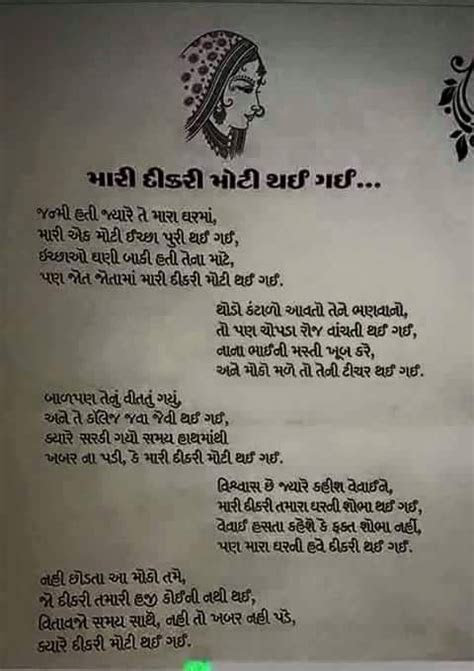 મારી દીકરી મોટી થઈ ગઈ...
જન્મી હતી જ્યારે તે મારા ઘરમાં,
મારી એક મોટી ઈચ્છા પુરી થઈ ગઈ,
ઈચ્છાઓ ઘણી બાકી હતી તેના માટે,
પણ જોત જોતામાં મારી દીકરી મોટી થઈ ગઈ.
થોડો કંટાળો આવતો તેને ભણવાનો,
તો પણ ચોપડા રોજ વાંચતી થઈ ગઈ,
નાના ભાઈની મસ્તી ખૂબ કરે,
અને મોકો મળે તો તેની ટીચર થઈ ગઈ.
બાળપણ તેનું વીતતું ગયું,
અને તે કૉલેજ જવા જેવી થઈ ગઈ,
ક્યારે સરકી ગયો સમય હાથમાંથી
ખબર ના પડી, કે મારી દીકરી મોટી થઈ ગઈ.
વિશ્વાસ છે જ્યારે કહીશ વેવાઈને,
મારી દીકરી તમારા ઘરની શોભા થઈ ગઈ,
વેવાઈ હસતા કહેશે કે ફક્ત શોભા નહીં,
પણ મારા ઘરની હવે દીકરી થઈ ગઈ.
નહી છોડતા આ મોકો તમે,
જો દીકરી તમારી હજી કોઈની નથી થઈ,
વિતાવજો સમય સાથે, નહી તો ખબર નહી પડે,
ક્યારે દીકરી મોટી થઈ ગઈ.